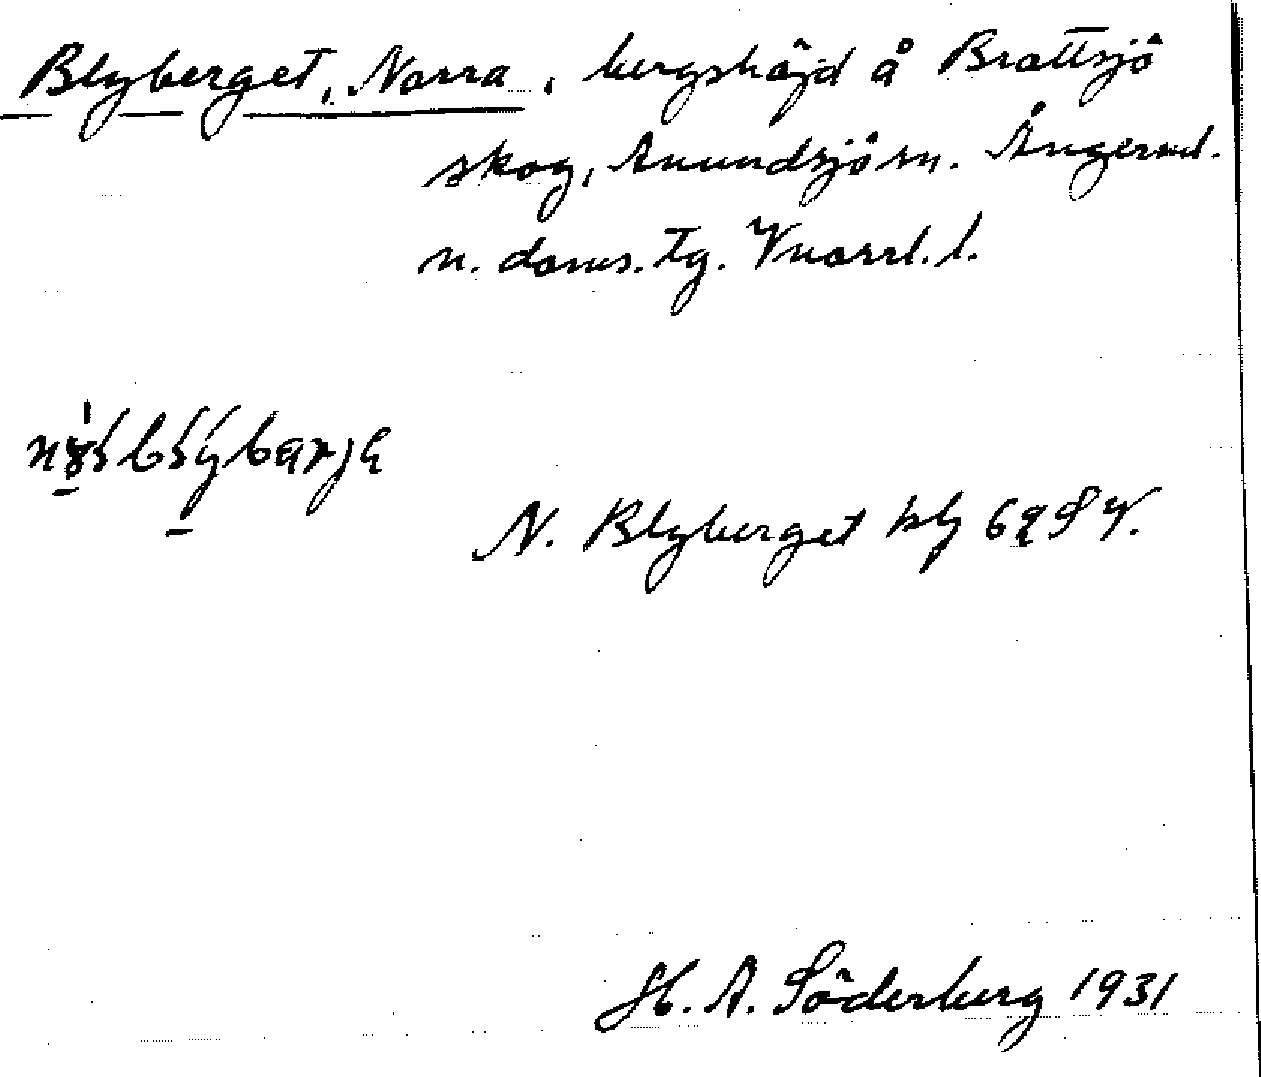 Blyberget, Norra, bergshöjd å Brattsjö
skog, Anundsjö sn. Ångerml.
n. doms. tg. Vnorrl. l.
N. Blyberget
H. A. Söderberg 1931